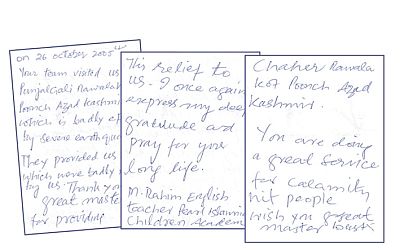 on 26 October 2005
Your team visited us
Panjal Gali Rawalak
Poonch Azad Kashmir
which is badly ef
by severe earthqu
They provided us
which were badly n
by us. Thank you
great maste
for providing
This relief to
us. I once again
express my dee
gratitude and
pray for your
long life.
M. Rahim English
teacher Pearl Islamia
Children Academ
Chaher Rawala
kot Poonch Azad
Kashmir.
You are doing
a great service
for calamity
hit people
wish you great
master